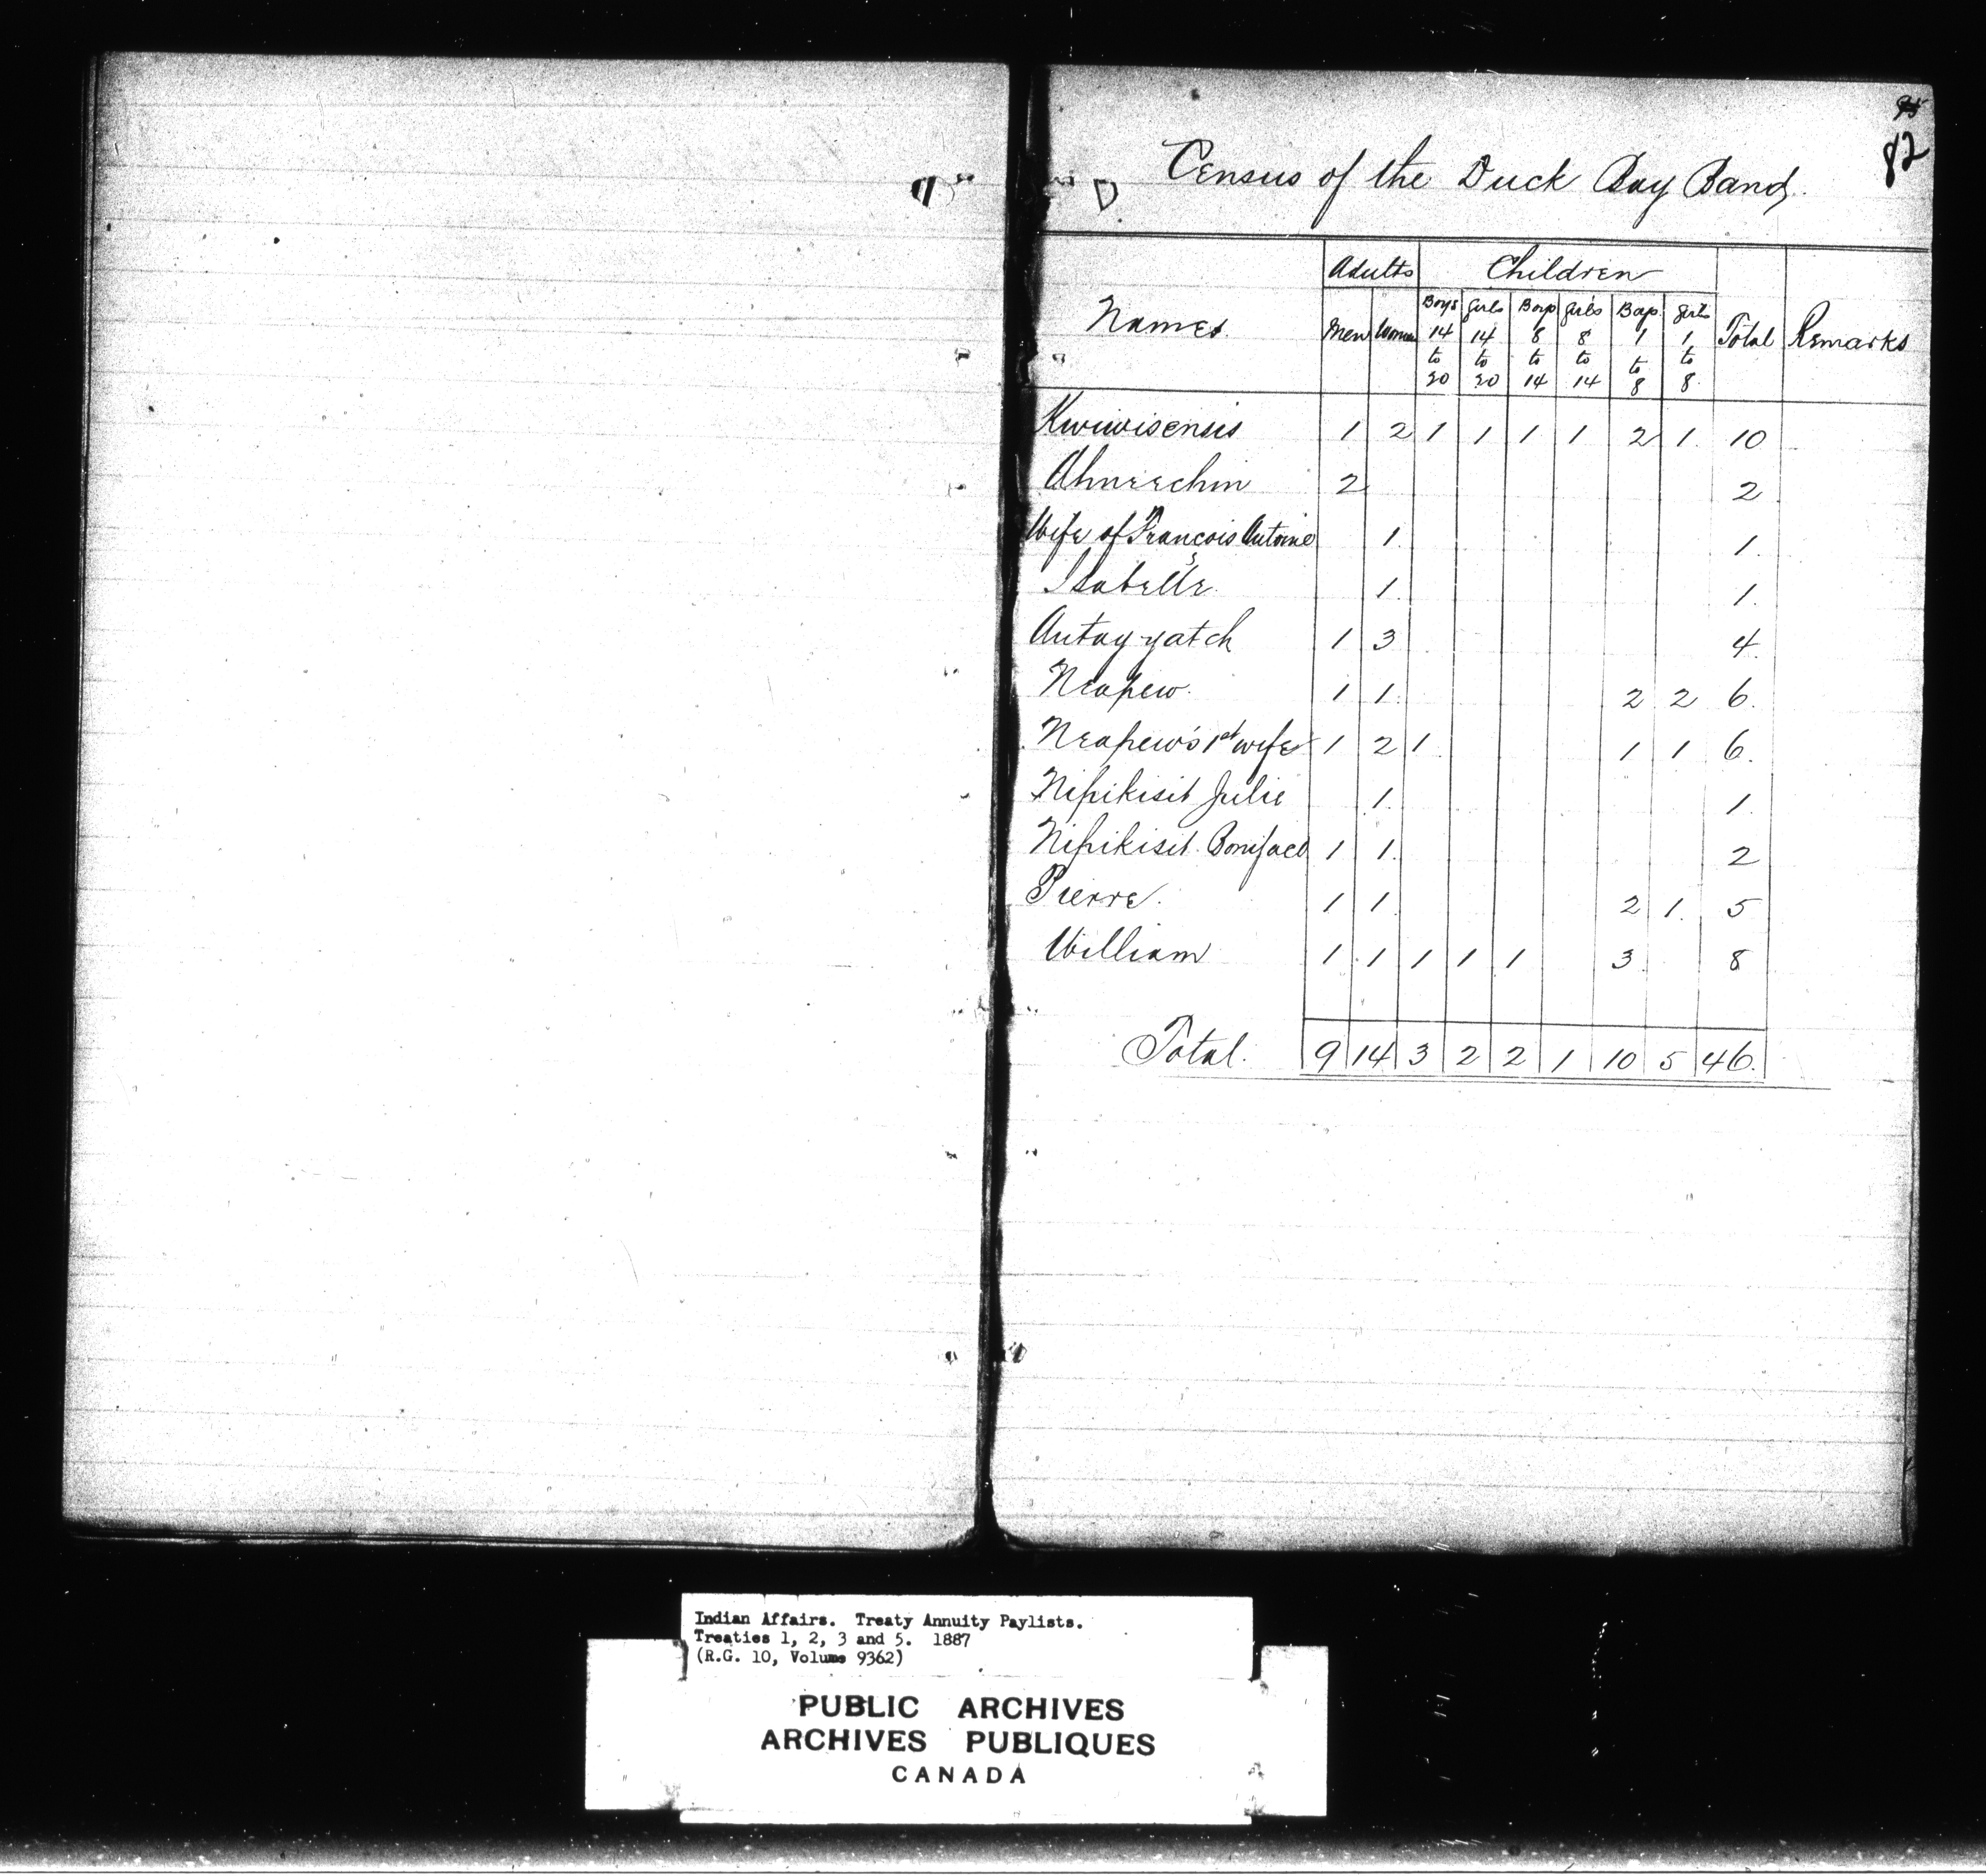 82
Census of the Duck Bay Band.
Names. Adults Children Total Remarks
Men Women Boys 14 to 20 Girls 14 to 20 Boys 8 to 14 Girls 8 to 14 Boys 1 to 8 Girls 1 to 8
Kwiwisensis 1 2 1 1 1 1 2 1 10
Ahneechin 2 2
Wife of François Antoine 1 1
Isabelle 1 1
Autay-yatch 1 3 4
Neapew 1 1 2 2 6
Neapew's 1st wife 1 2 1 1 1 6
Nipikisit Julie 1 1
Nipikisit Boniface 1 1 2
Pierre 1 1 2 1 5
William 1 1 1 1 1 3 8
Total. 9 14 3 2 2 1 10 5 46
Indian Affairs. Treaty Annuity Paylists.
Treaties 1, 2, 3 and 5. 1887
(R.G. 10, Volume 9362)
PUBLIC ARCHIVES
ARCHIVES PUBLIQUES
CANADA